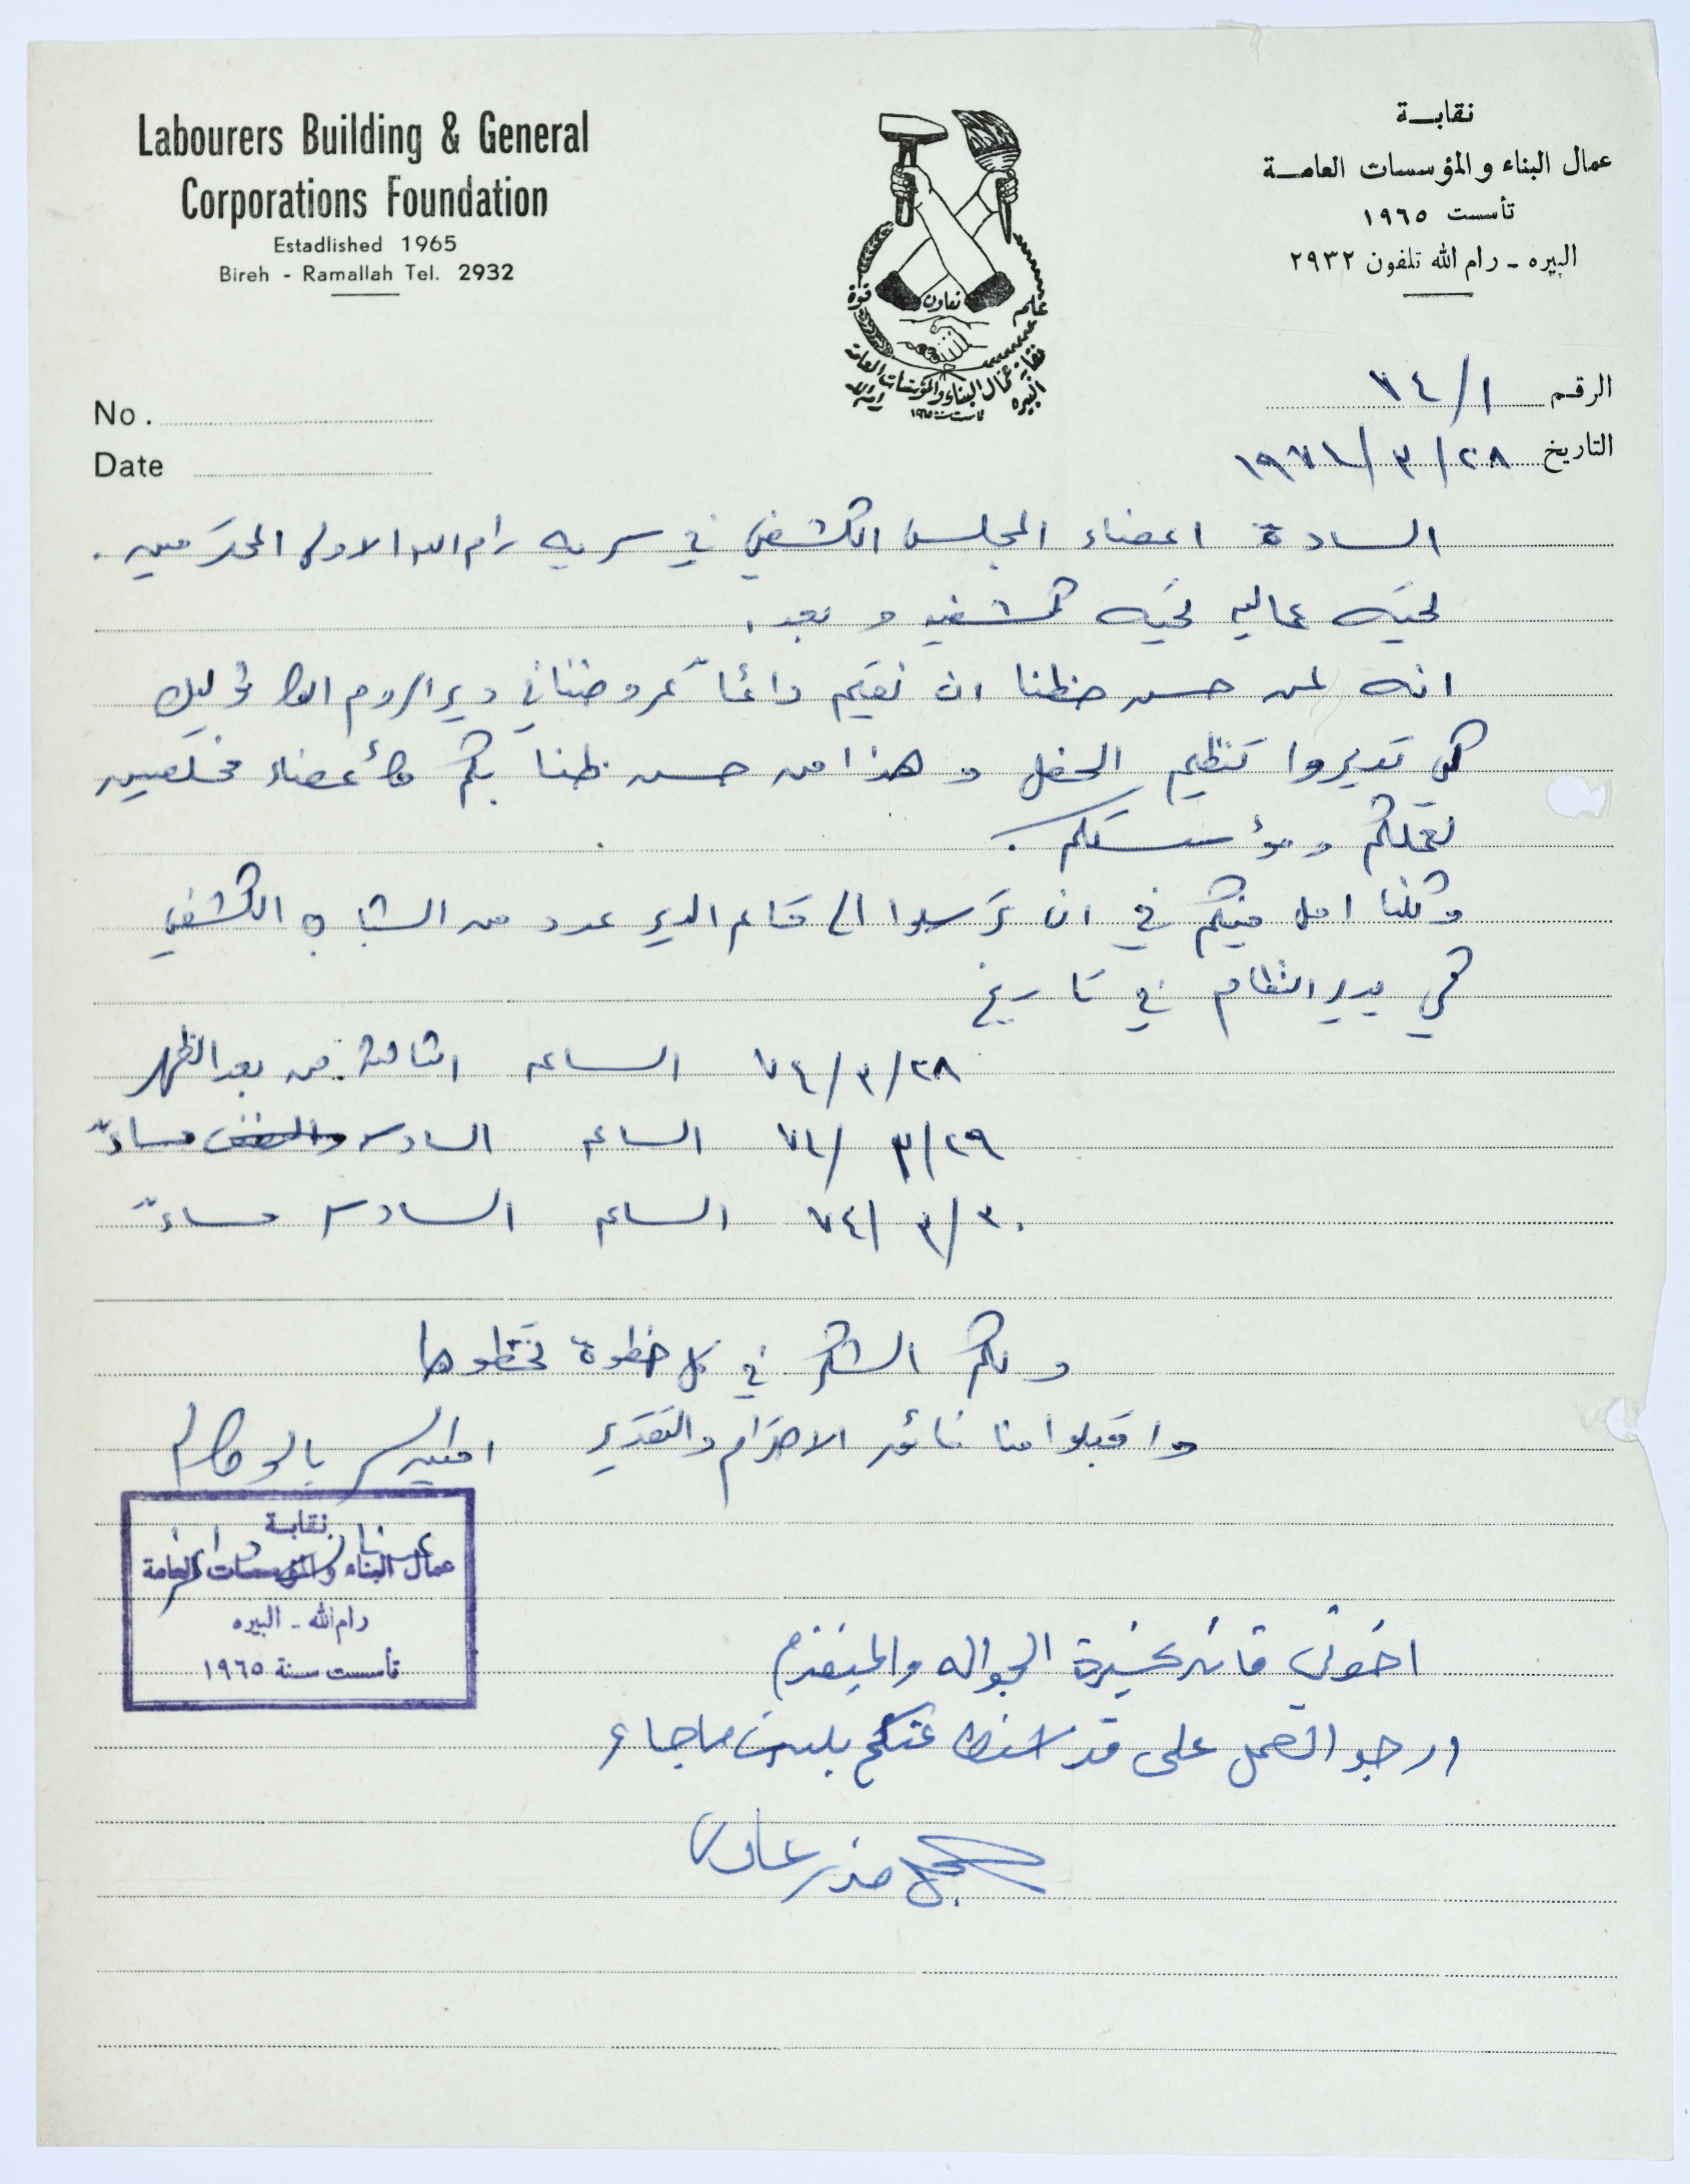 Labourers Building & General
Corporations Foundation
Estadlished 1965
Bireh - Ramallah Tel. 2932
نقابة
عمال البناء والمؤسسات العامة
تأسست ١٩٦٥
البيره - رام الله تلفون ٢٩٣٢
علم
تعاون
قوة
نقابة عمال البناء والمؤسسات العامة
البيره رام الله
تأسست سنة ١٩٦٥
No.
Date
الرقم ٧٤/١
التاريخ ٢٨/٣/١٩٧٤
السادة اعضاء المجلس الكشفي في سريه رام الله الاولى المحترمين.
تحيه عماليه تحيه كشفيه وبعد.
انه لمن حسن حظنا ان نقيم دائماً عروضنا في دير الروم
كي تديروا تنظيم الحفل وهذا من حسن ظنا بكم كأعضاء مخلصين
لعملكم ومؤسستكم.
وكلنا امل فيكم في ان ترسلوا الى قاعه الدير عدد من الشباب الكشفي
كي يدير النظام في تاريخ
٧٤/٣/٢٨ الساعه الثالثة من بعد الظهر
٧٤/٣/٢٩ الساعه السادسه مساءً
٧٤/٣/٣٠ الساعه السادسه مساءً
ولكم الشكر في كل خطوة تخطوها
واقبلوا منا فائق الاحترام والتقدير امين السر بالوكاله
نقابة
عمال البناء والمؤسسات العامة
رام الله - البيره
تأسست سنة ١٩٦٥
اخوتي قائد عشيرة الجواله والمتقدم
ارجو العمل على قدر استطاعتكم بلبس ما جاء